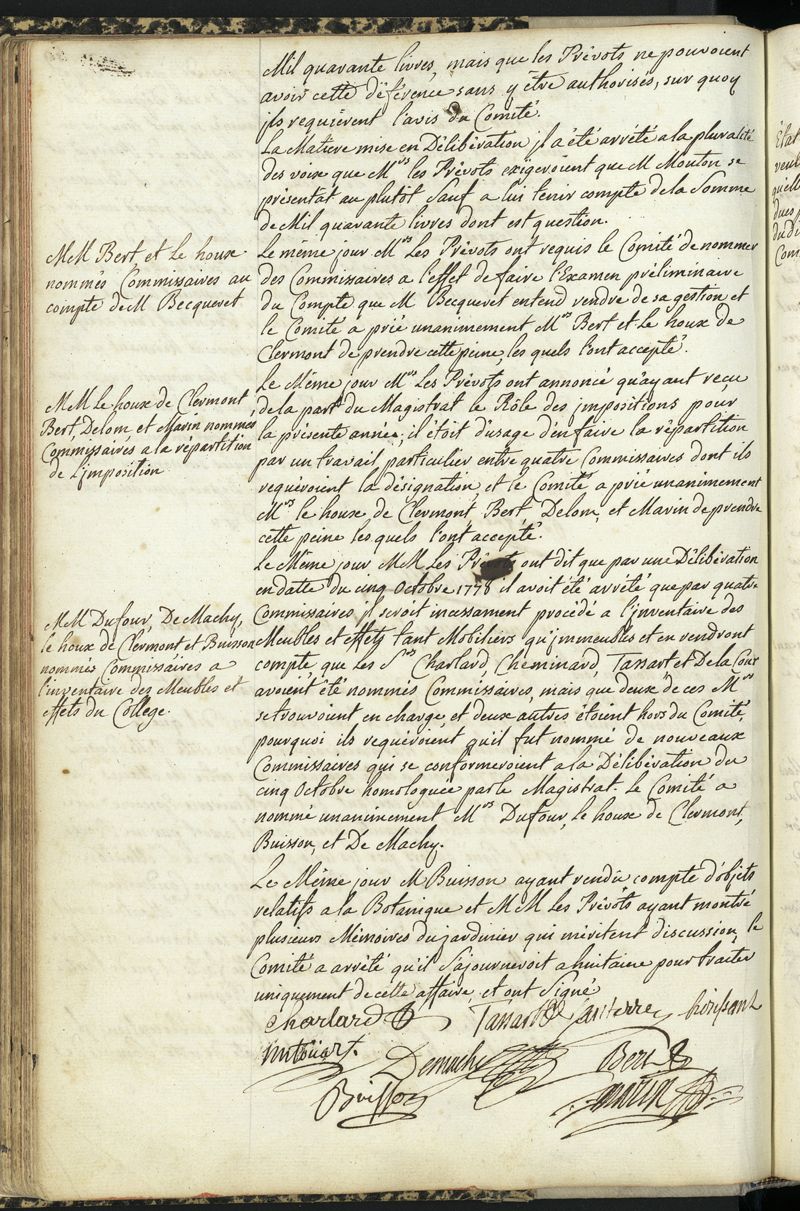 Mil quarante livres, mais que les Prévots ne pouvoient
avoir cette déférence sans y être authorisés, sur quoy
jls requièrent l'avis du Comité.
La Matiere mise en Délibération jl a été arrété a la pluralité
des voix que M.rs les Prévots exigeroient que M Mouton se
présentat au plutôt Sauf a lui tenir compte de la Somme
de Mil quarante livres dont est question.
MM Bert et Le houx
nommés Commissaires au
compte de M Becqueret
Le même jour M.rs Les Prévots ont requis le Comité de nommer
des Commissaires a l'effet de faire l'Examen préliminaire
du Compte que M Becqueret entend rendre de sa gestion et
le Comité a prié unanimement M.rs Bert et Le houx de
Clermont de prendre cette peine, les quels l'ont accepté.
MM Le houx de Clermont
Bert, Delom et Marin nommés
Commissaires a la répartition
de L'jmposition
Le Même jour M.rs Les Prévots ont annoncé qu'ayant reçu
de la part du Magistrat le Rôle des jmpositions pour
la présente année, il étoit d'usage d'en faire la répartition
par un travail particulier entre quatre Commissaires dont ils
requéroient la désignation et le Comité a prié unanimement
M.rs le houx de Clermont, Bert, Delom, et Marin de prendre
cette peine les quels l'ont accepté.
MM Dufour, De Machy,
le houx de Clérmont et Buisson
nommés Commissaires a
l'inventaire des Meubles et
effets du College.
Le Même jour MM Les Prévots ont dit que par une Délibération
en datte du cinq Octobre 1778 il avoit été arrété que par quatre
Commissaires, jl seroit incessament procédé a l'jnventaire des
Meubles et effets tant Mobiliers qu'jmmeubles et en rendront
compte que les S.rs Charlard, Cheminard, Tassart et De la Cour
avoient été nommés Commissaires, mais que deux de ces M.rs
se trouvoient en charge, et deux autres étoient hors du Comité,
pourquoi ils requéroient qu'il fut nommé de nouveaux
Commissaires qui se conformeroient a la Délibération du
cinq Octobre homologuée par le Magistrat. Le Comité a
nommé unanimement M.rs Dufour, le houx de Clermont,
Buisson, et De Machy.
Le Même jour M Buisson ayant rendu compte d'objets
relatifs a la Botanique et MM Les Prévôts ayant montré
plusieurs Mémoires du jardinier qui méritent discussion, le
Comité a arrêté qu'il s'ajourneroit a huitaine pour traiter
uniquement de cette affaire, et ont Signé
Charlard Tassart Santerre hérissant
Demachy Bert
Buisson marin